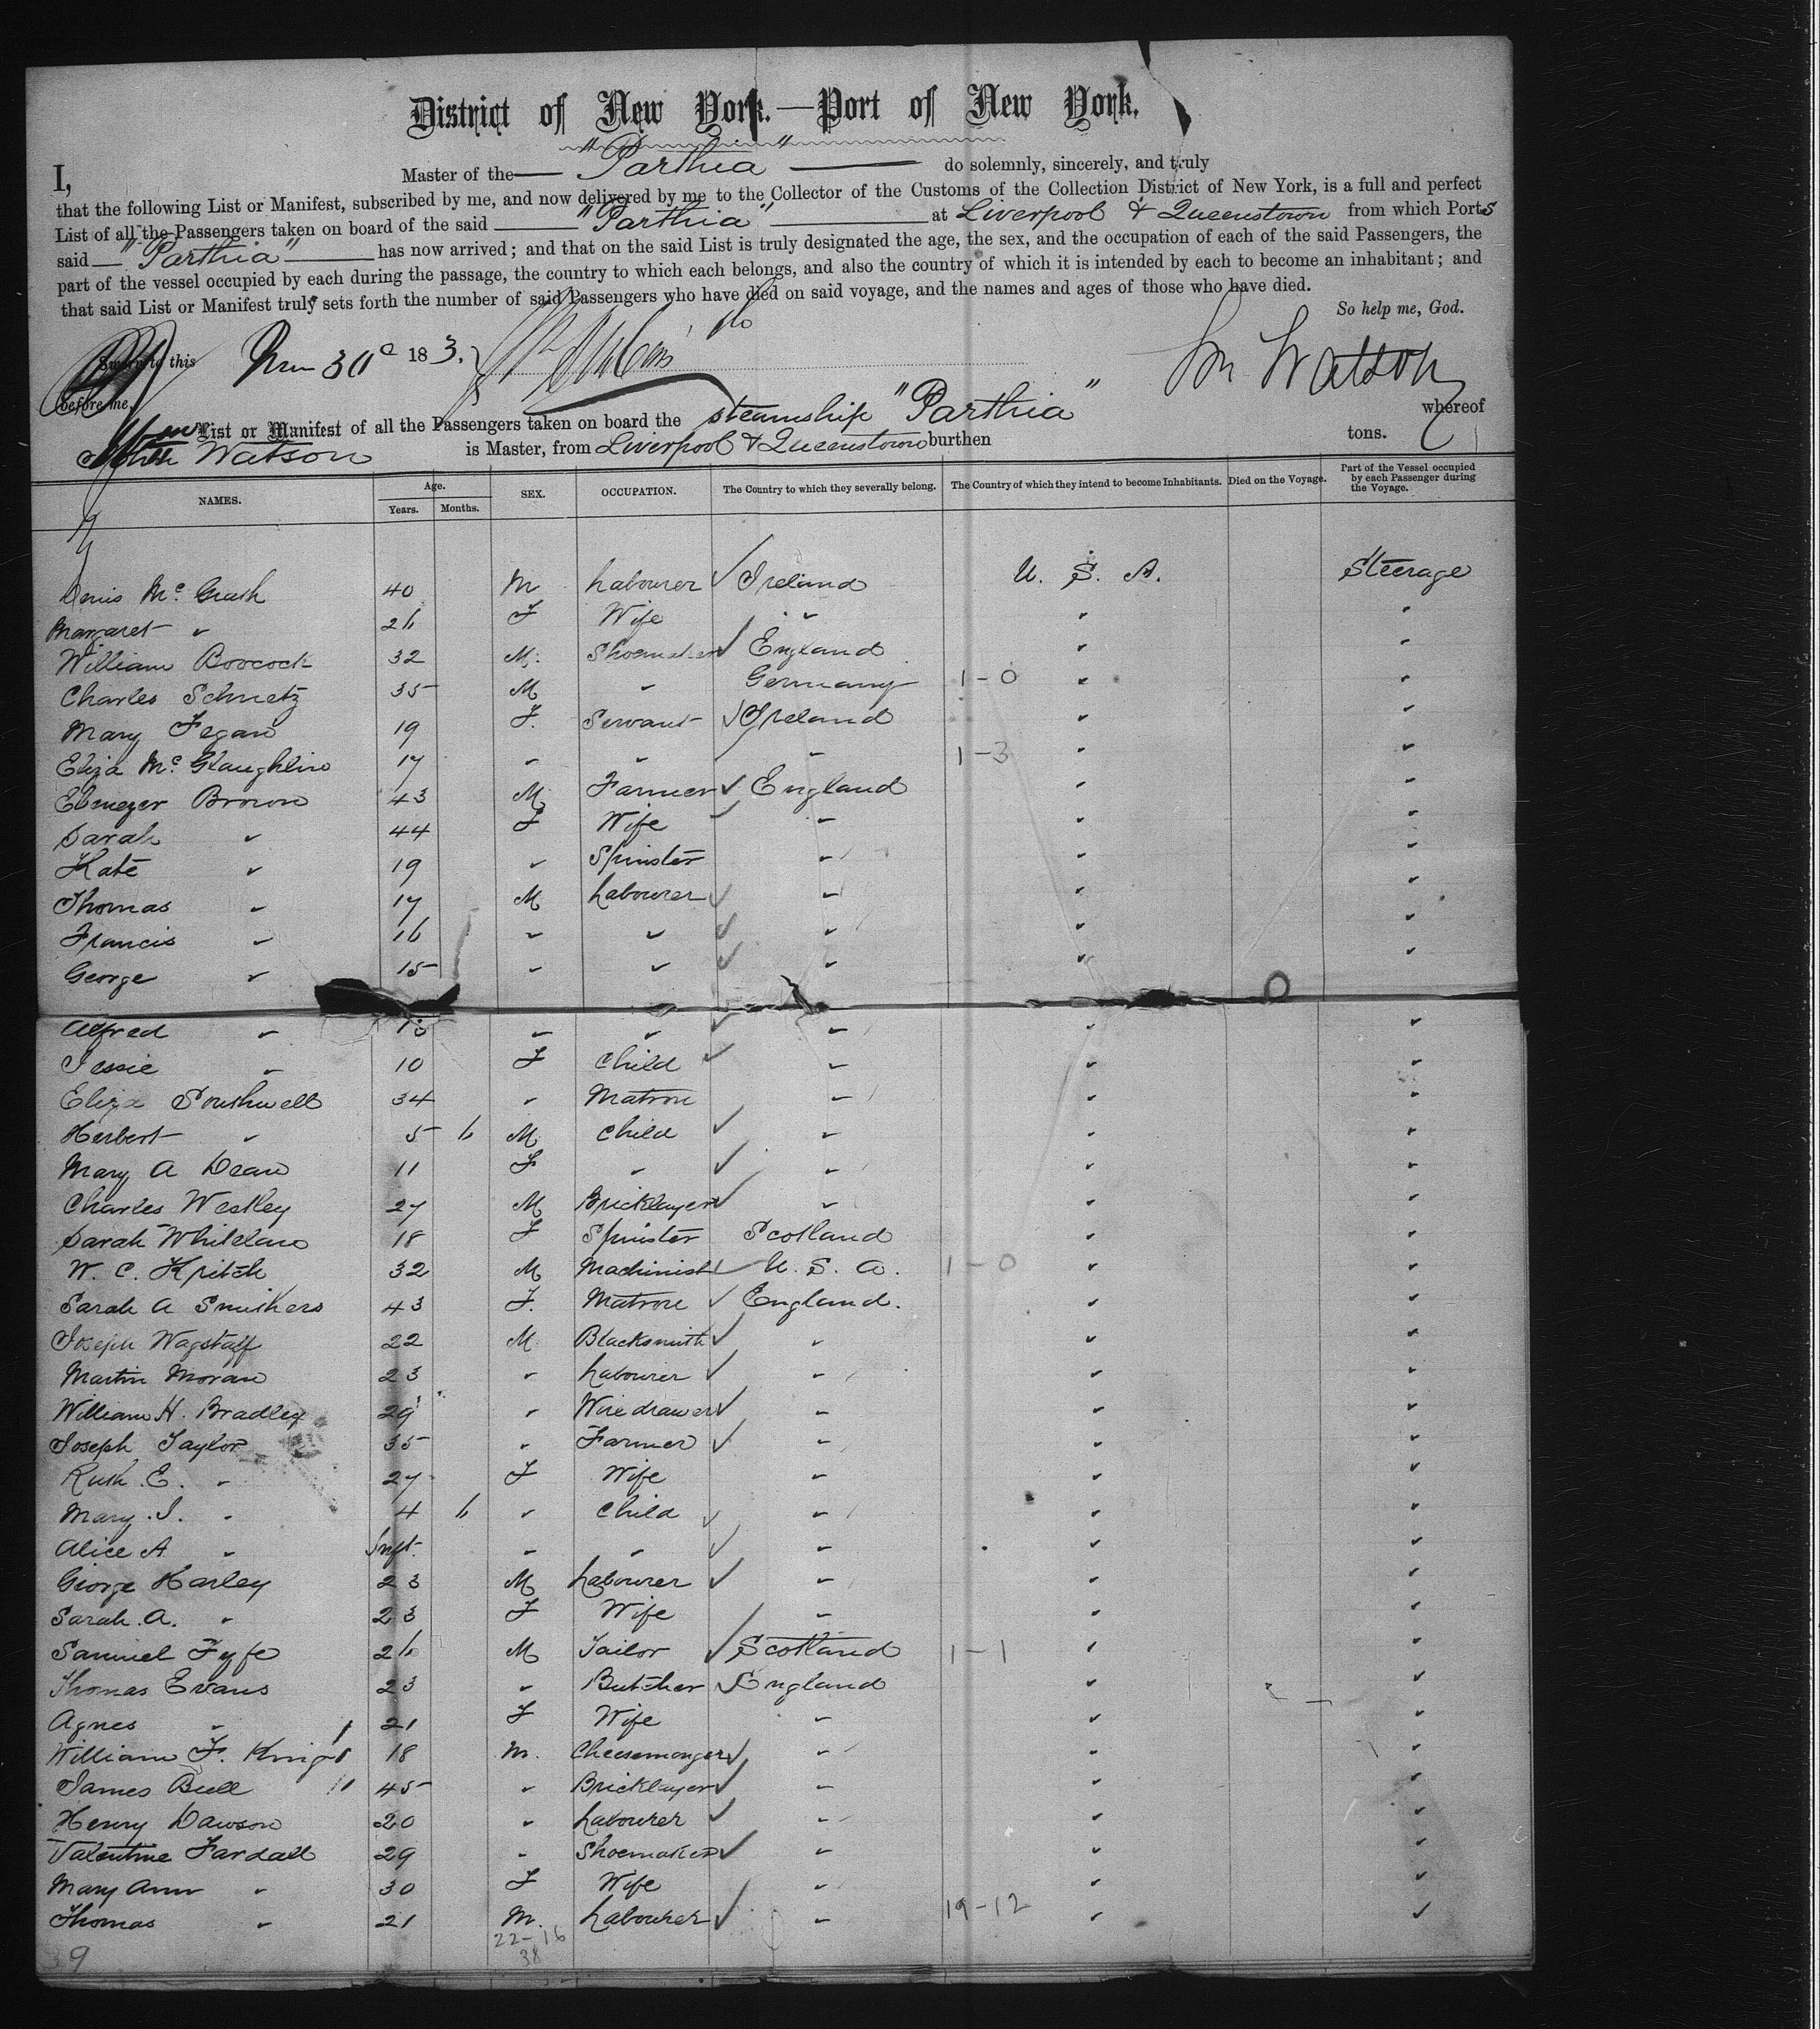 District of New York.—Port of New York.
I, Master of the "Parthia" do solemnly, sincerely, and truly
that the following List or Manifest, subscribed by me, and now delivered by me to the Collector of the Customs of the Collection District of New York, is a full and perfect
List of all the Passengers taken on board of the said "Parthia" at Liverpool & Queenstown from which Ports
said "Parthia" has now arrived; and that on the said List is truly designated the age, the sex, and the occupation of each of the said Passengers, the
part of the vessel occupied by each during the passage, the country to which each belongs, and also the country of which it is intended by each to become an inhabitant; and
that said List or Manifest truly sets forth the number of said Passengers who have died on said voyage, and the names and ages of those who have died.
So help me, God.
Sworn to this 30 1883. Watson
before me,
List or Manifest of all the Passengers taken on board the steamship "Parthia" whereof
Watson is Master, from Liverpool & Queenstown burthen tons.
NAMES. Age. Years. Months. SEX. OCCUPATION. The Country to which they severally belong. The Country of which they intend to become Inhabitants. Died on the Voyage. Part of the Vessel occupied by each Passenger during the Voyage.
Denis Mc Grath 40 M Labourer ✓ Ireland U. S. A. Steerage
Margaret " 26 F Wife " " "
William Boocock 32 M. Shoemaker ✓ England " "
Charles Schmetz 35 M " Germany 1-0 " "
Mary Fegan 19 F. Servant ✓ Ireland " "
Eliza Mc Glaughlin 17 " " " 1-3 " "
Ebenezer Brown 43 M Farmer ✓ England " "
Sarah " 44 F Wife " " "
Kate " 19 " Spinster " " "
Thomas " 17 M Labourer ✓ " " "
Francis " 16 " " ✓ " " "
George " 15 " " ✓ " " "
Alfred " " " ✓ " " "
Jessie " 10 F Child ✓ " " "
Eliza Southwell 34 " Matron " " "
Herbert " 5 6 M Child ✓ " " "
Mary A Dean 11 F " ✓ " " "
Charles Westley 27 M Bricklayer ✓ " " "
Sarah Whitelaw 18 F Spinster Scotland " "
W. C. Kritch 32 M Machinist ✓ U. S. A. 1-0 " "
Sarah A Smithers 43 F. Matron ✓ England. " "
Joseph Wagstaff 22 M Blacksmith ✓ " " "
Martin Moran 23 " Labourer ✓ " " "
William H. Bradley 29 " Wire drawer ✓ " " "
Joseph Taylor 35 " Farmer ✓ " " "
Ruth E. " 27 F Wife " " "
Mary J. " 4 6 " Child ✓ " " "
Alice A " Inft. " " ✓ " " "
George Harley 23 M Labourer ✓ " " "
Sarah A. " 23 F Wife " " "
Samuel Fyfe 26 M Tailor ✓ Scotland 1-1 " "
Thomas Evans 23 " Butcher ✓ England " "
Agnes " 21 F Wife " " "
William F. 18 M. Cheesemonger ✓ " " "
James Bull 45 " Bricklayer ✓ " " "
Henry Dawson 20 " Labourer ✓ " " "
Valentine Fardall 29 " Shoemaker ✓ " " "
Mary Ann " 30 F Wife " " "
Thomas " 21 M. Labourer ✓ " 19-12 " "
22-16
38
39